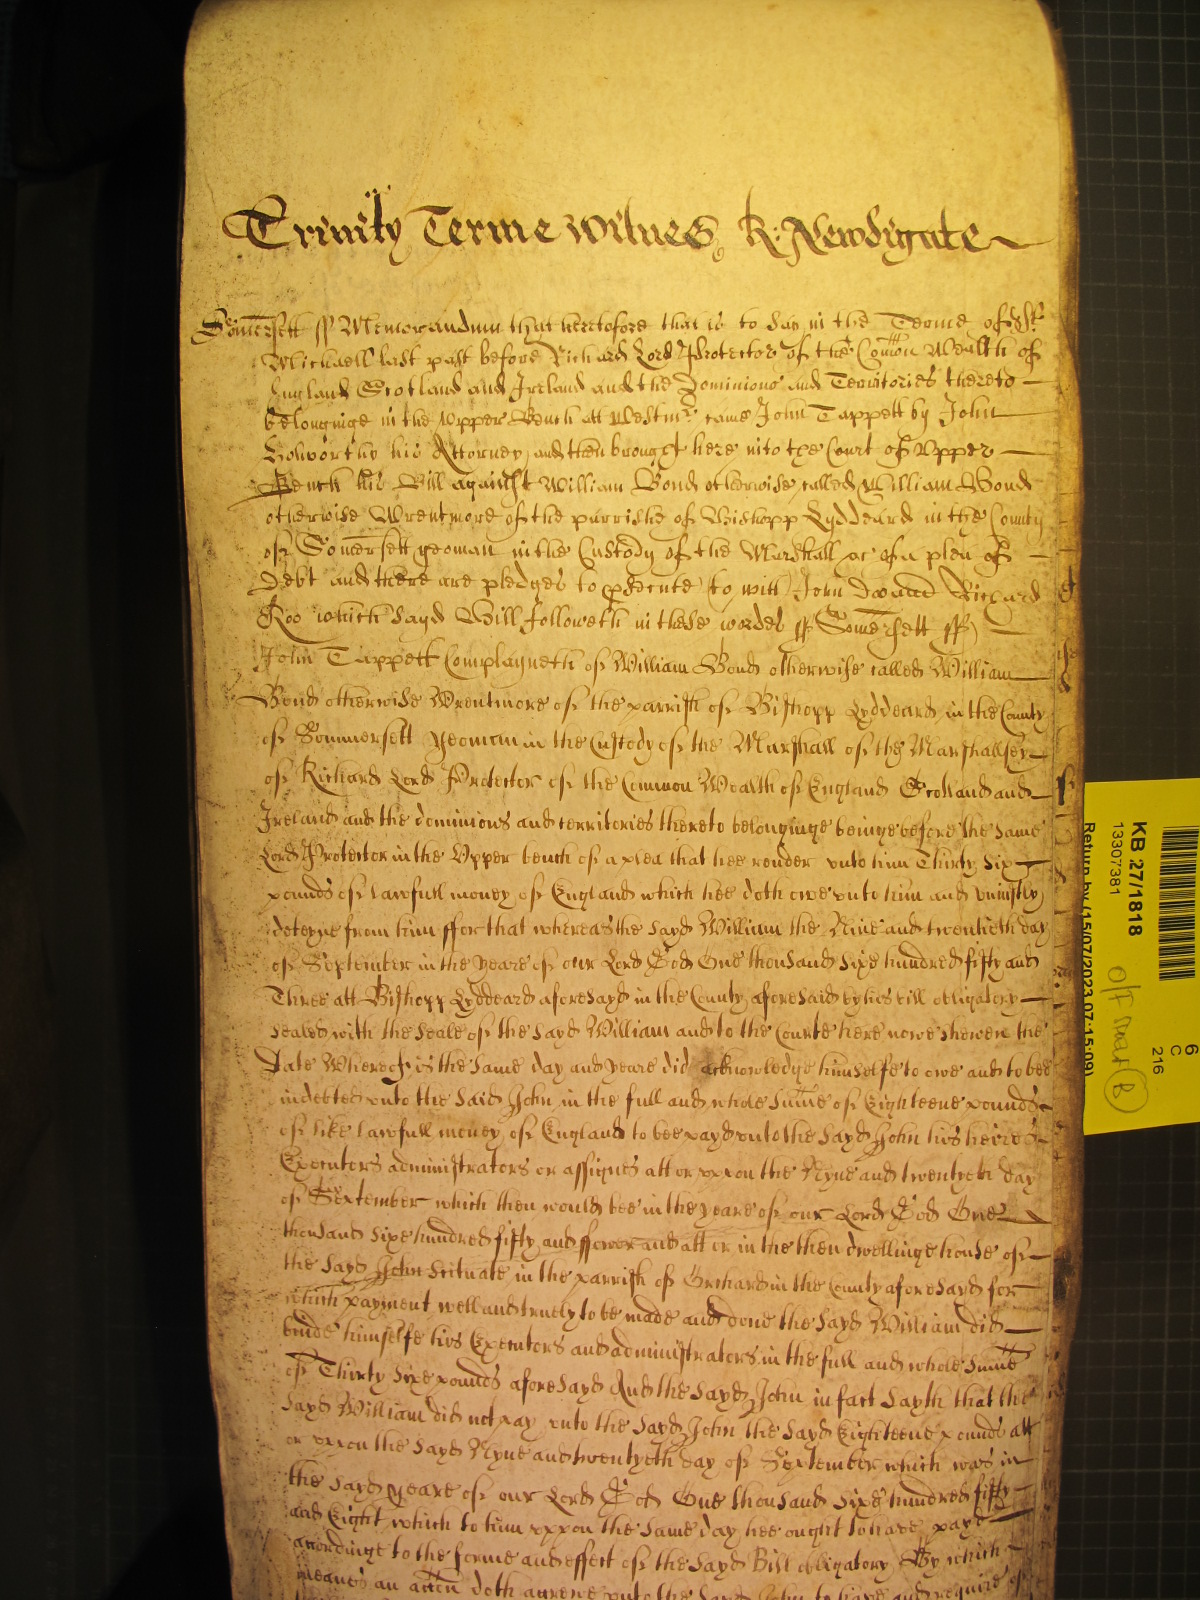 Trinity Terme Witnes R: Newdigate
Somersett ss Memorandum that heretofore that is to say in the Terme of St
Michaell last past before Richard Lord Protector of the Comon Wealth of
England Scotland and Ireland and the Dominions and Territories thereto
belonginge in the Vpper Bench att Westmr came John Tappett by John
Holworthy his Attorney and then brought here into the Court of Vpper
Bench his Bill against William Bond otherwise called William Bond
otherwise Wrentmore of the parrishe of Bishopp Lyddeard in the County
of Somersett yeoman in the Custody of the Marshall &c of a plea of
Debt and there are pledges to psecute to witt John Doo and Richard
Roo which sayd Bill followeth in these wordes ss Somersett ss
John Tappett Complayneth of William Bond otherwise called William
Bond otherwise Wrentmore of the parrish of Bishopp Lyddeard in the County
of Sommersett yeoman in the Custody of the Marshall of the Marshallsey
of Richard Lord Protector of the Common Wealth of England Scotland and
Ireland and the dominions and territories thereto belonginge beinge before the same
Lord Protector in the Vpper bench of a plea that hee render vnto him Thirty Six
pounds of lawfull money of England which hee doth owe vnto him and vniustly
deteyne from him ffor that whereas the sayd William the Nine and twentieth day
of September in the yeare of our Lord God One thousand sixe hundred fifty and
Three att Bishopp Lyddeard aforesayd in the County aforesaid by his bill obligatory
sealed with the seale of the sayd William and to the Courte here nowe shewen the
Date Whereof is the same day and yeare did acknowledge himselfe to owe and to bee
indebted vnto the said John in the full and whole sume of Eighteene pounds
of like lawfull money of England to bee payd vnto the sayd John his heires
Executors administrators or assignes att or vppon the Nyne and twentyeth day
of September which then would bee in the yeare of our Lord God One
thousand sixe hundred fifty and ffower and att or in the then dwellinge house of
the sayd John scituate in the parrish of Orchard in the County aforesayd for
which payment well and truely to be made and done the sayd William did
binde himselfe his Executors and administrators in the full and whole sume
of Thirty Sixe pounds aforesayd And the sayd John in fact sayth that the
sayd William did not pay vnto the sayd John the sayd Eighteene pounds att
or vppon the sayd Nyne and twentyeth day of September which was in
the sayd yeare of our Lord God One thousand sixe hundred fifty
and Eight which to him vppon the same day hee ought to have payd
accordinge to the forme and effect of the sayd Bill obligatory By which
meanes an accon doth accrewe vnto the sayd John to have and require of
KB 27/1818
13307381
Return by (15/07/2023 07:15:09)
6
C
216